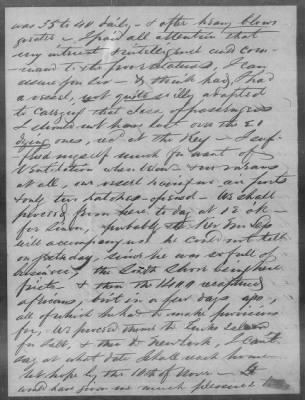 was 35 to 40 daily, - & after heavy blows
greater - I paid all attention that
my interest & intelligence could com-
mand to the poor creatures, I can
assure you Sir - & think had I had
a vessel, not quite so illy adapted
to carrying that class of passengers
I should not have lost over the 20
dying ones, rec'd at the Key - I suf-
fered myself much for want of
ventilation when & no means
at all, our vessel having no air ports
& only two hatches opened - We shall
proceed from here to day at 12 o'k -
for Sinou, probably the Rev Mr Seys
will accompany us he could not tell
on yesterday, since he was so full of
business, the South Shore being here
& then the 1400 recaptured
africans, but in a few days ago,
all of which he had to make provisions
for, We proceed thence to
for Salt, & then to New York, I cant
say at what date I shall reach home
but hope by the 10th of Nov - It
would have given me much pleasure